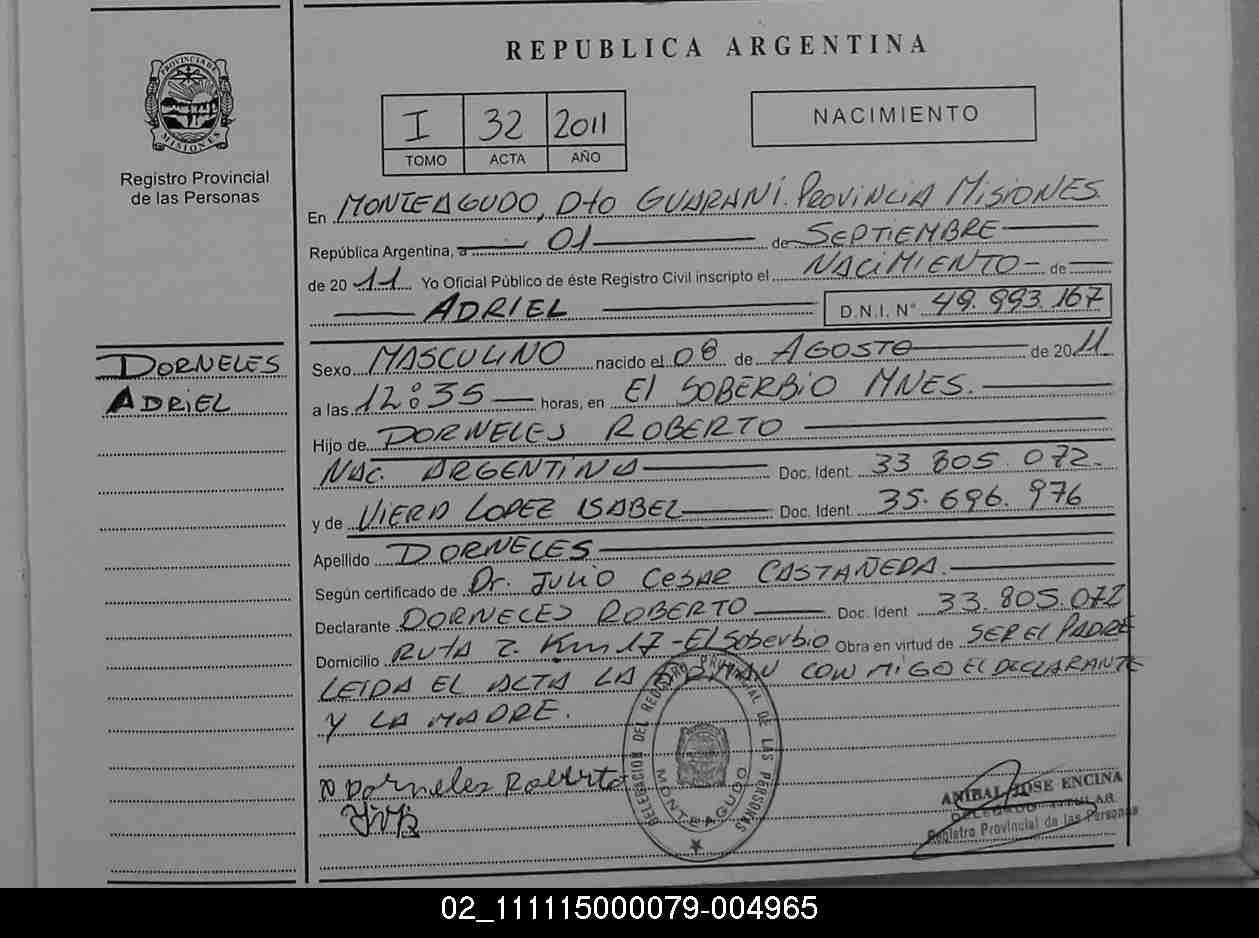 REPUBLICA ARGENTINA
PROVINCIA DE MISIONES
Registro Provincial
de las Personas
I 32 2011
TOMO ACTA AÑO
NACIMIENTO
En MONTEAGUDO, Dto GUARANÍ. PROVINCIA MISIONES.
República Argentina, a 01 de SEPTIEMBRE
de 2011 Yo Oficial Público de éste Registro Civil inscripto el NACIMIENTO de
ADRIEL D.N.I. N° 49.993.167
DORNELES
ADRIEL
Sexo MASCULINO nacido el 08 de AGOSTO de 2011
a las 12:35 horas, en El SOBERBIO MNES.
Hijo de DORNELES ROBERTO
NAC. ARGENTINA Doc. Ident. 33 805. 072.
y de VIERA LOPEZ ISABEL Doc. Ident. 35. 696. 976
Apellido DORNELES
Según certificado de Dr. JULIO CESAR CASTAÑEDA.
Declarante DORNELES ROBERTO Doc. Ident 33.805.072
Domicilio RUTA 2. Km 17 - El Soberbio Obra en virtud de SER El PADRE
LEIDA EL ACTA LA FIRMAN CON MIGO EL DECLARANTE
Y LA MADRE.
DELEGACION DEL REGISTRO PROVINCIAL DE LAS PERSONAS
MONTEAGUDO
Dorneles Roberto
ANIBAL JOSE ENCINA
DELEGADO TITULAR
Registro Provincial de las Personas
02_111115000079-004965